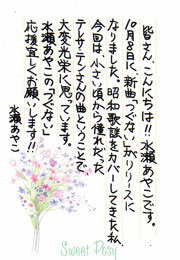 皆さん、こんにちは!! 水瀬あやこです。
10月8日に、新曲「つぐない」がリリースに
なりました。昭和歌謡をカバーしてきた私、
今回は小さい頃から憧れだった
テレサ・テンさんの曲ということで
大変光栄に思っています。
水瀬あやこの「つぐない」
応援宜しくお願いします!!
水瀬あやこ
Sweet Posy